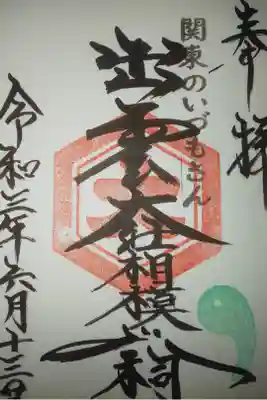 奉拝
関東のいづもさん
出雲大社相模分祠
令和三年六月十三日